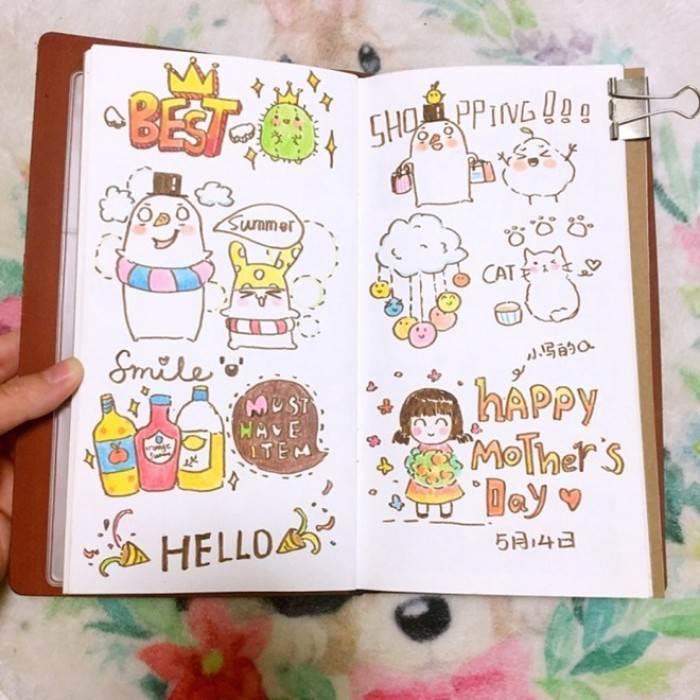 BEST
Summer
Smile
MUST
HAVE
ITEM
HELLO
SHOPPING!!!
CAT
小写的a
hAPPY
MoTher's
Day
5月14日